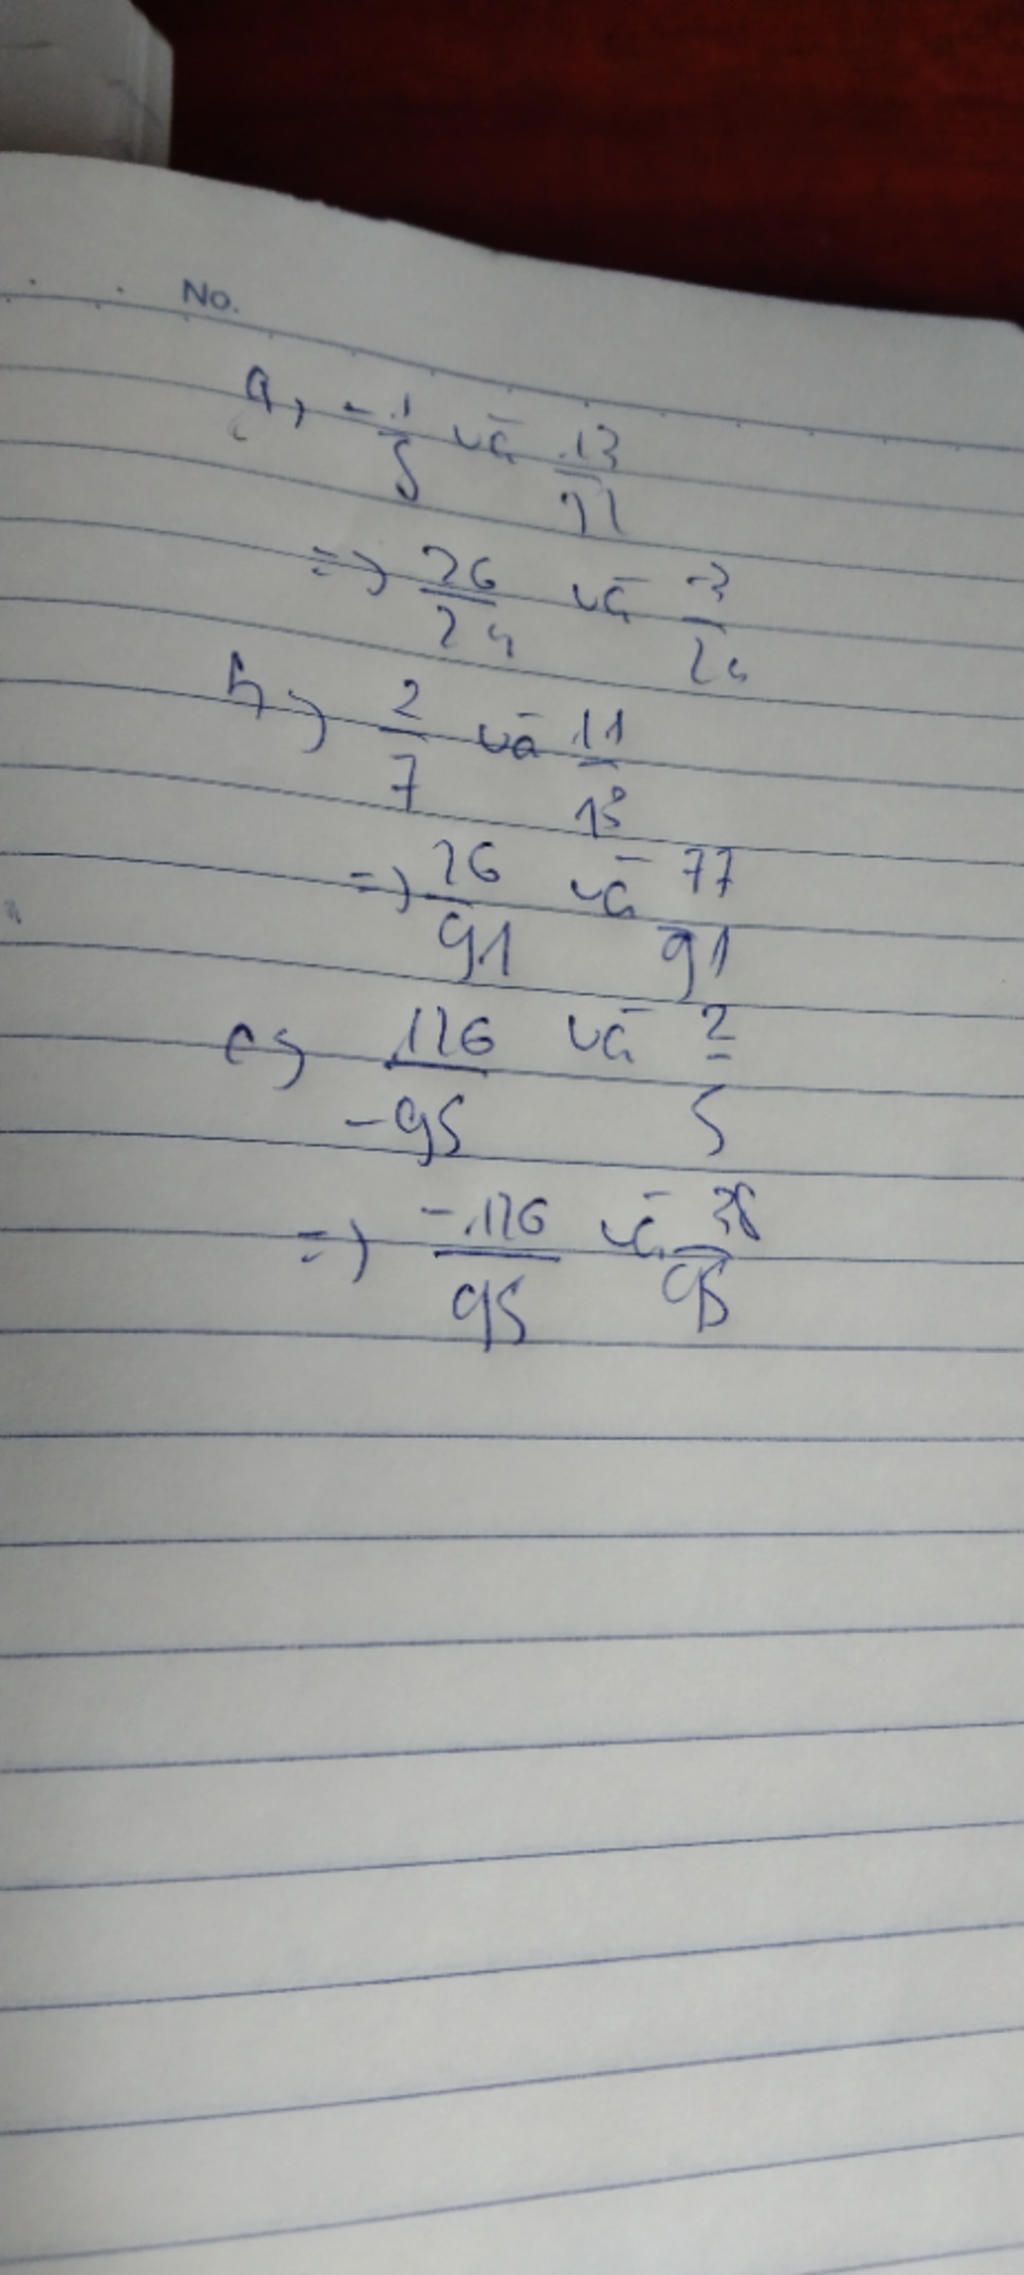 No.
a, -1/5 và 13/12
=> 26/24 và -3/24
b) 2/7 và 11/13
=> 26/91 và 77/91
c) 126/-95 và 2/5
=> -126/95 và 38/95